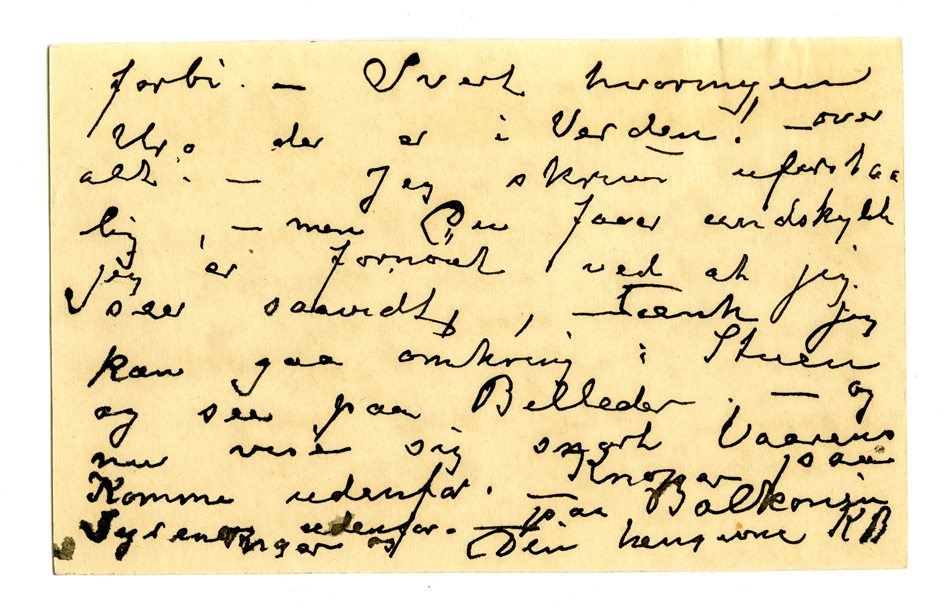 forbi. — Svert hvormegen
Uro der er i Verden! — over
alt. — Jeg skriver uforstaa
lig, — men Du faaer undskylde
jeg er fornøiet ved at jeg
seer saavidt, — Tænk jeg
kan gaa omkring i Stuen
og see paa Billeder. — og
nu viser sig snart Vaarens
Komme udenfor. — Knopper paa
Syrener udenfor. — paa Balkonen
og Din hengivne KB